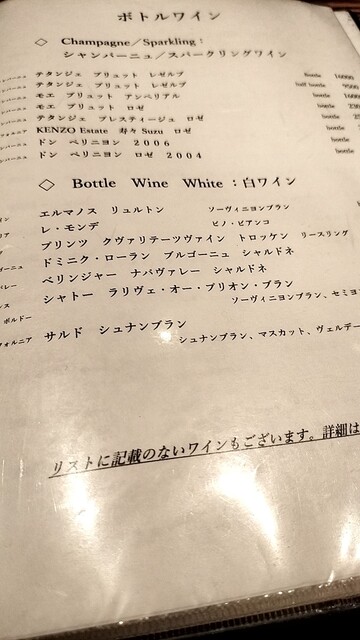 ボトルワイン
◇ Champagne／Sparkling：
シャンパーニュ／スパークリングワイン
テタンジェ ブリュット レゼルブ bottle 16000
テタンジェ ブリュット レゼルブ half bottle 9500
モエ ブリュット アンペリアル bottle
モエ ブリュット ロゼ bottle
テタンジェ プレスティージュ ロゼ bottle
KENZO Estate 寿々 Suzu ロゼ bottle
ドン ペリニヨン 2006 bottle
ドン ペリニヨン ロゼ 2004 bottle
◇ Bottle Wine White：白ワイン
エルマノス リュルトン ソーヴィニヨンブラン
レ・モンデ ピノ・ビアンコ
プリンツ クヴァリテーツヴァイン トロッケン リースリング
ドミニク・ローラン ブルゴーニュ シャルドネ
ベリンジャー ナパヴァレー シャルドネ
シャトー ラリヴェ・オー・ブリオン・ブラン
ボルドー ソーヴィニヨンブラン、セミヨ
フォルニア サルド シュナンブラン
シュナンブラン、マスカット、ヴェルデー
リストに記載のないワインもございます。詳細は